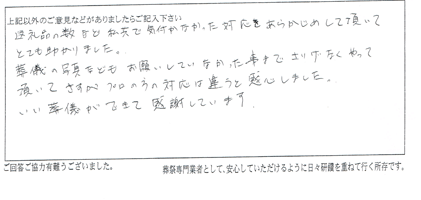 上記以外のご意見などがありましたらご記入下さい
返礼品の数など 私共で気付かなかった対応をあらかじめして頂いて
とても助かりました。
葬儀の写真なども お願いしていなかった事までさりげなくやって
頂いて さすが プロの方の対応は違うと感心しました。
いい葬儀ができて 感謝しています。
ご回答ご協力有難うございました。
葬祭専門業者として、安心していただけるように日々研鑽を重ねて行く所存です。